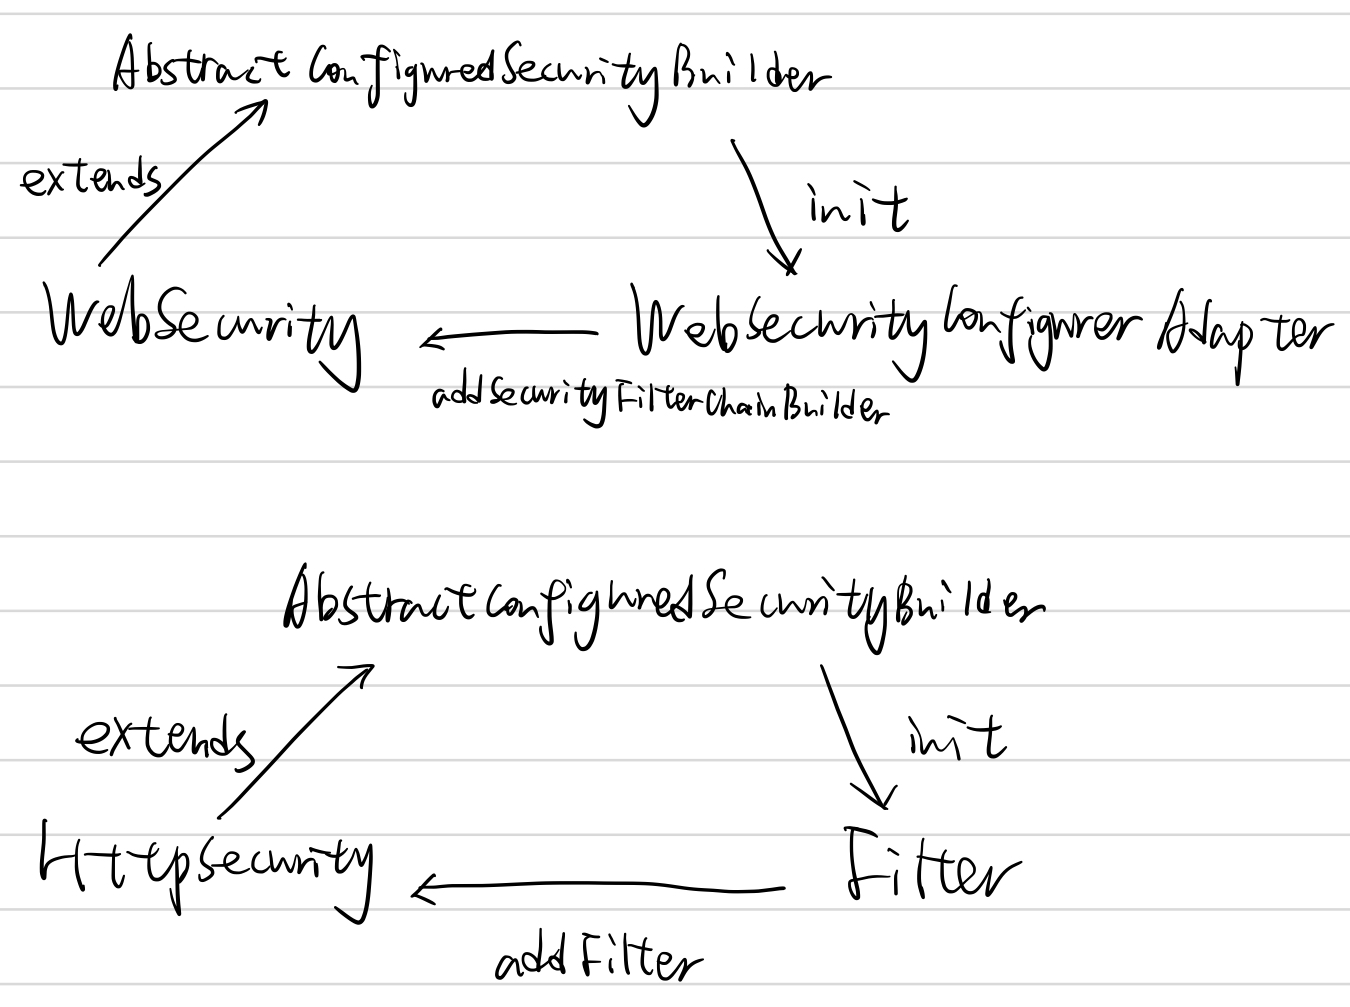 AbstractConfiguredSecurityBuilder
extends
init
WebSecurity
WebSecurityConfigurerAdapter
addSecurityFilterChainBuilder
AbstractConfiguredSecurityBuilder
extends
init
HttpSecurity
Filter
addFilter